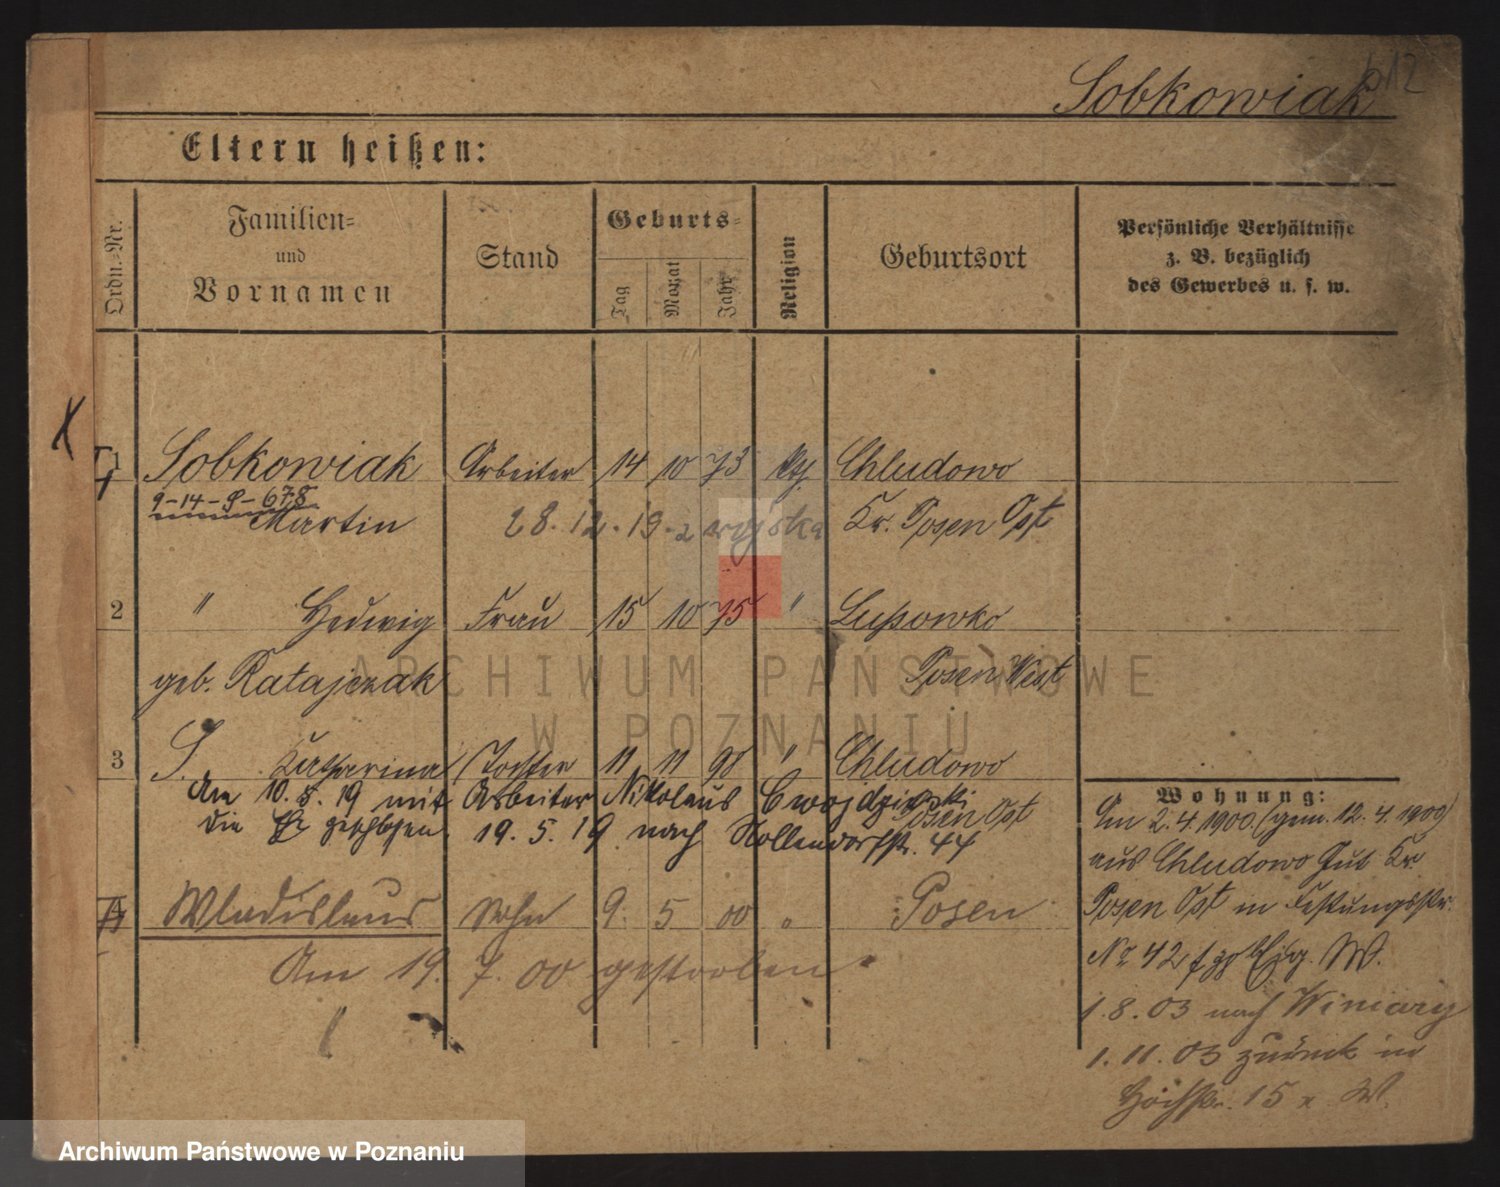 612
Sobkowiak
Eltern heißen:
Ordn.-Nr.
Familien-
und
Vornamen
Stand
Geburts-
Tag
Monat
Jahr
Religion
Geburtsort
Persönliche Verhältnisse
z. B. bezüglich
des Gewerbes u. s. w.
X
1 Sobkowiak Arbeiter 14 10 73 kth Chludowo
9-14-9-678
Martin 28.12.19 z wojska Kr. Posen Ost
2 " Hedwig Frau 15 10 75 " Lussowko
geb. Ratajczak Posen West
3 S. Katharina Tochter 11 11 98 " Chludowo
Posen Ost
Am 10.5.19 mit Arbeiter Nikolaus Cwojdzinski
die Ehe geschlossen. 19.5.19 nach Nollendorfstr. 44
4 Wladislaus Sohn 9. 5 00 " Posen
Am 19. 7. 00 gestorben
Wohnung:
Am 2.4.1900. (gem. 12.4.1900)
aus Chludowo Gut Kr.
Posen Ost in Festungsstr.
No 42 W.
1.8.03 nach Winiary
1.11.03 zurück in
15 W.
ARCHIWUM PAŃSTWOWE
W POZNANIU
Archiwum Państwowe w Poznaniu